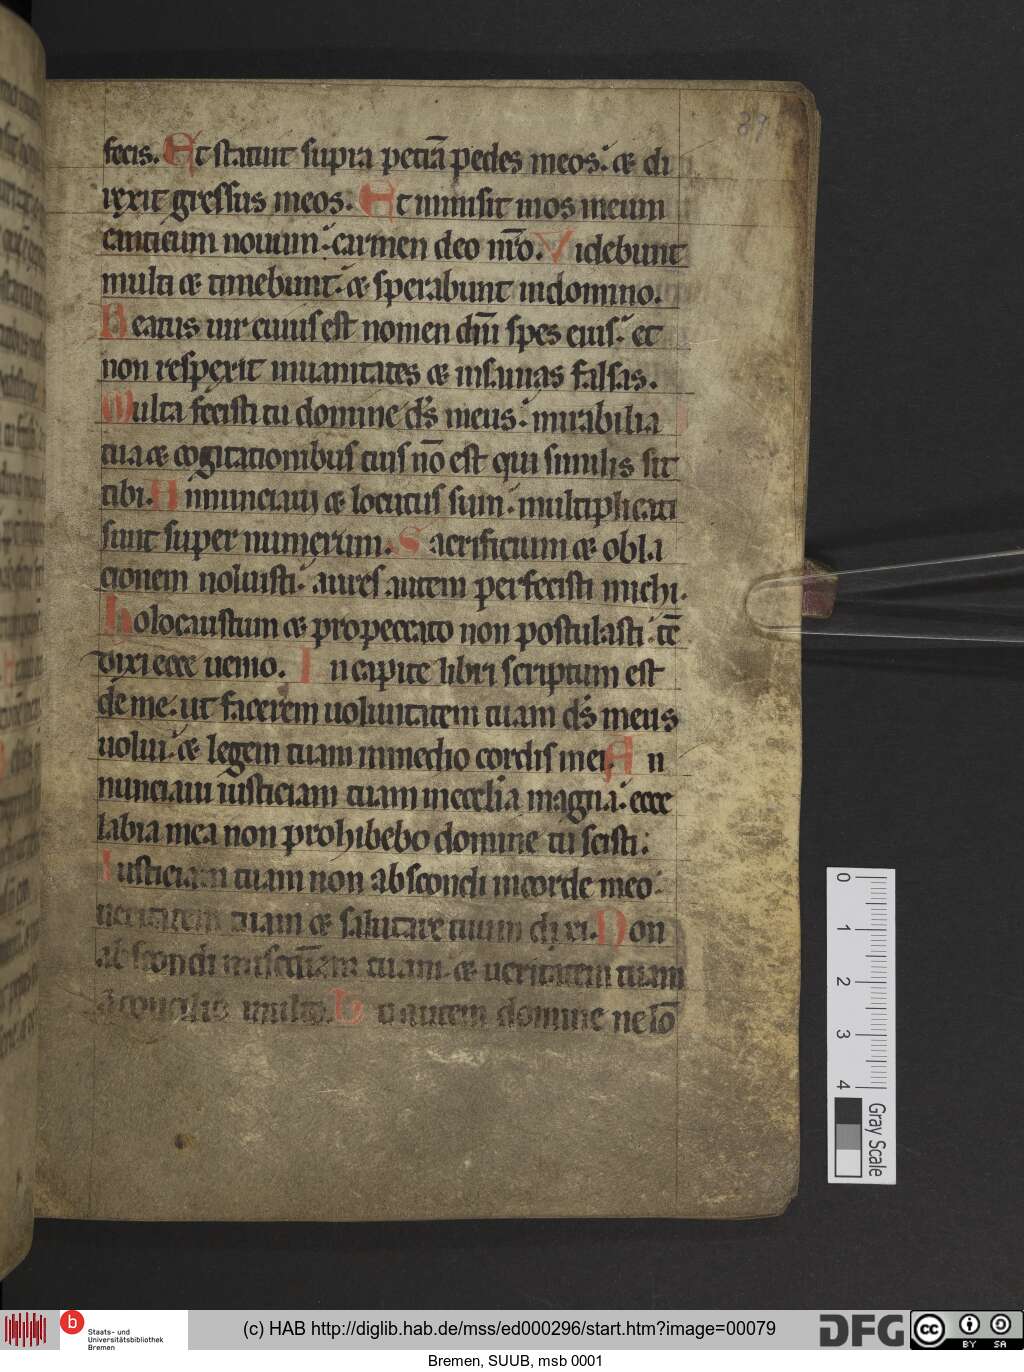 37
fecis. Et statuit supra petrā pedes meos: & di
rexit gressus meos. Et inmisit in os meum
canticum nouum: carmen deo nr̄o. Videbunt
multi & timebunt: & sperabunt indomino.
Beatus uir cuius est nomen dnī spes eius: et
non respexit inuanitates & insanias falsas.
Multa fecisti tu domine ds̄ meus: mirabilia
tua & cogitationibus tuis nō est qui similis sit
tibi. Annunciaui & locutus sum: multiplicati
sunt super numerum. Sacrificium & obla
cionem noluisti: aures autem perfecisti michi.
Holocaustum & propeccato non postulasti: tc̄
dixi ecce uenio. In capite libri scriptum est
de me: ut facerem uoluntatem tuam ds̄ meus
uolui: & legem tuam inmedio cordis mei. An
nunciaui iusticiam tuam inecclīa magna: ecce
labia mea non prohibebo domine tu scisti:
Iusticiam tuam non abscondi incorde meo:
ueritatem tuam & salutare tuum dixi. Non
abscondi misc̄diam tuam & ueritatem tuam
a concilio multo. Tu autem domine ne lō
0 1 2 3 4
Gray Scale
b Staats- und
Universitätsbibliothek
Bremen
(c) HAB http://diglib.hab.de/mss/ed000296/start.htm?image=00079
DFG
cc BY SA
Bremen, SUUB, msb 0001